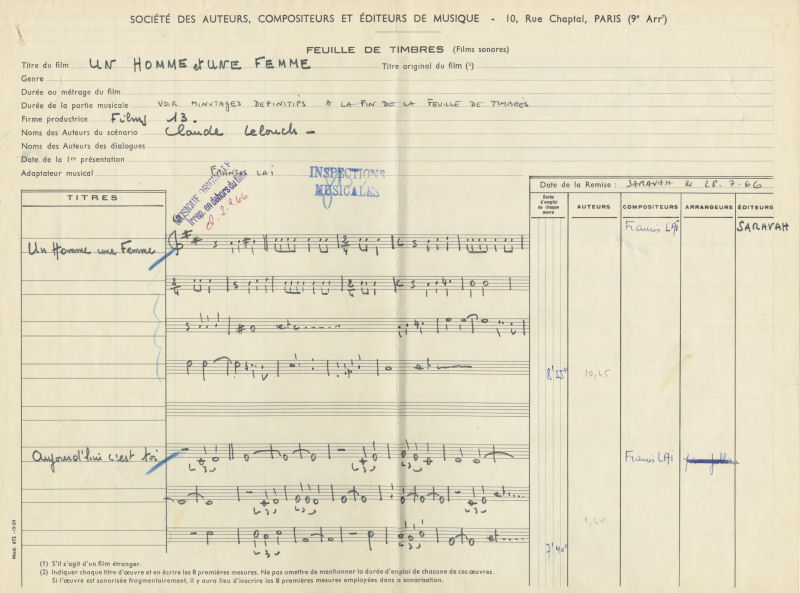 SOCIÉTÉ DES AUTEURS, COMPOSITEURS ET ÉDITEURS DE MUSIQUE - 10, Rue Chaptal, PARIS (9e Arrt)
FEUILLE DE TIMBRES (Films sonores)
Titre du film UN HOMME et UNE FEMME Titre original du film (1)
Genre
Durée ou métrage du film
Durée de la partie musicale VOIR MINUTAGES DEFINITIFS A LA FIN DE LA FEUILLE DE TIMBRES
Firme productrice Films 13.
Noms des Auteurs du scénario Claude Lelouch -
Noms des Auteurs des dialogues
Date de la 1re présentation
Adaptateur musical FRANCIS LAI
MUSIQUE ORIGINALE
en dehors du film
2.9.66
INSPECTIONS
MUSICALES
Date de la Remise : SARAVAH le 28.7.66
TITRES
Durée d'emploi de chaque œuvre
AUTEURS
COMPOSITEURS
ARRANGEURS
ÉDITEURS
Un Homme une Femme
Francis LAI
SARAVAH
etc......
etc
8'55"
10,45
Aujourd'hui c'est toi
Francis LAI
etc....
1,40
7'40"
etc
Mod. 672. -10-59
(1) S'il s'agit d'un film étranger.
(2) Indiquer chaque titre d'œuvre et en écrire les 8 premières mesures. Ne pas omettre de mentionner la durée d'emploi de chacune de ces œuvres.
Si l'œuvre est sonorisée fragmentairement, il y aura lieu d'inscrire les 8 premières mesures employées dans la sonorisation.